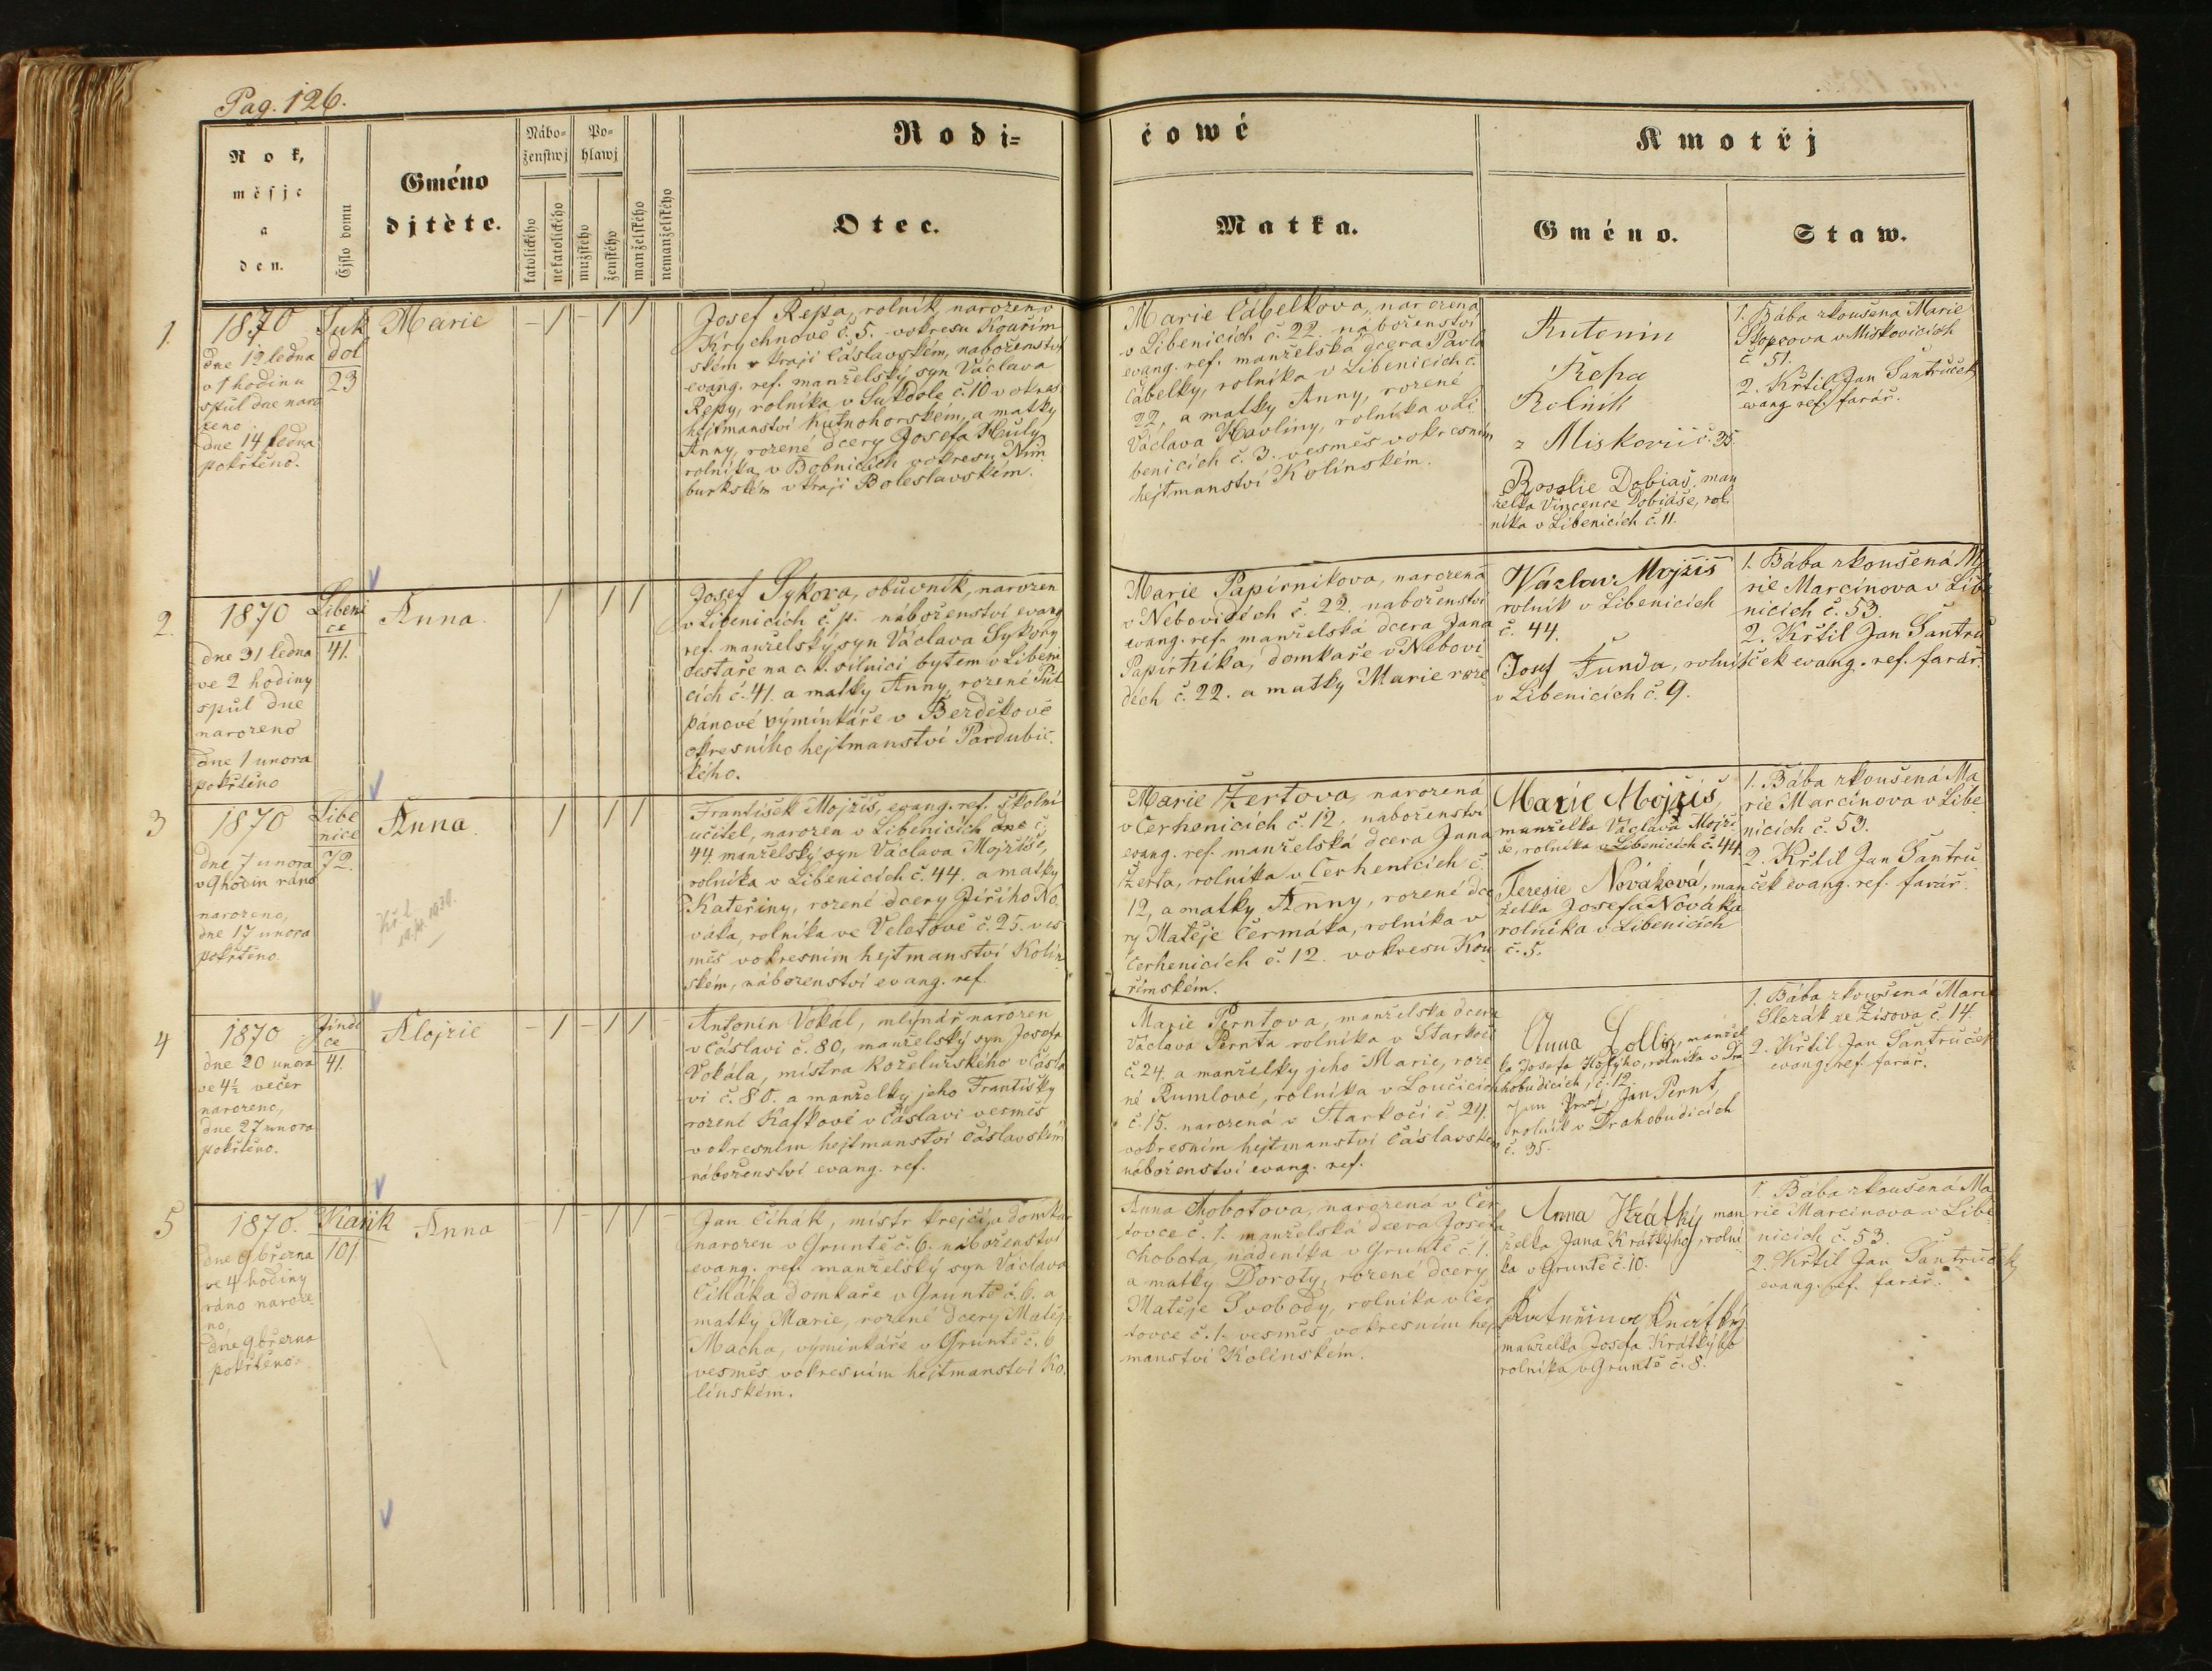 Pag. 126.
Rok,
měsjc
a
den.
Čjslo domu
Gméno
djtěte.
Nábo=
ženstwj
katolického
nekatolického
Po=
hlawj
mužského
ženského
manželského
nemanželského
Rodi=
čowé
Otec.
Matka.
Kmotřj
Gméno.
Staw.
1.
1870
dne 12 ledna
o 1 hodinu
spůl dne naro
zeno
dne 14 ledna
pokřtěno.
Suk
dol
23
Marie
Josef Řepa, rolník, narozen v
Krychnově č. 5. v okresu Kouřim
ském v kraji Čáslavském, náboženství
evang. ref. manželský syn Václava
Řepy, rolníka v Sukdole č. 10 v okres.
hejtmanství Kutnohorském, a matky
Anny, rozené dcery Josefa
rolníka v Bobnicích v okresu Nim
burkském v kraji Boleslavském.
Marie Čábelkova, narozena
v Libenicích č. 22. náboženství
evang. ref. manželská dcera Pavla
Čábelky, rolníka v Libenicích č.
22, a matky Anny, rozené
Václava Havliny, rolníka v Li
benicích č. 3. vesměs v okresním
hejtmanství Kolínském.
Antonin
Řepa
Rolník
z Miskovic č. 35.
Rosalie Dobiaš, man
želka Vincence Dobiáše, rol.
níka v Libenicích č. 11.
1. Bába zkoušená Marie
Stopcova v Miskovicích
č. 51.
2. Křtil Jan Šantruček
evang. ref. farář.
2.
1870
dne 31 ledna
ve 2 hodiny
spůl dne
narozeno
dne 1 unora
pokřtěno
Libeni
ce
41.
Anna.
Josef Sykora, obuvník, narozen
v Libenicích č. náboženství evang
ref. manželský syn Václava Sykory
cestáře na c. k. silnici bytem v Libeni
cích č. 41. a matky Anny, rozené
pánové výminkáře v Berděkově
okresního hejtmanství Pardubic.
kého.
Marie Papírnikova, narozená
v Nebovidech č. 22. náboženství
evang. ref. manželská dcera Jana
Papírníka, domkaře v Nebovi
dech č. 22. a matky Marie roze
Václav Mojžiš
rolník v Libenicích
č. 44.
Josef Funda, rolník
v Libenicích č. 9.
1. Bába zkoušená Ma
rie Marcínova v Libe
nicích č. 53.
2. Křtil Jan Šantru
ček evang. ref. farář.
3
1870
dne 7 unora
v 9 hodin ráno
narozeno,
dne 17 unora
pokřtěno.
Libe
nice
72.
Anna.
František Mojžíš, evang. ref. školní
učitel, narozen v Libenicích č.
44. manželský syn Václava Mojžíše,
rolníka v Libenicích č. 44. a matky
Kateřiny, rozené dcery Jiřího No
váka, rolníka ve Veletově č. 25. ves
měs v okresním hejtmanství Kolín
ském, náboženství evang. ref.
Marie Žertova, narozená
v Cerhenicích č. 12, náboženství
evang. ref. manželská dcera Jana
Žerta, rolníka v Cerhenicích č.
12, a matky Anny, rozené dce
ry Matěje Čermáka, rolníka v
Cerhenicích č. 12. v okresu Kou
římském.
Marie Mojžiš,
manželka Václava Mojží
še, rolníka v Libenicích č. 44.
Teresie Nováková, man
želka Josefa Nováka
rolníka v Libenicích
č. 5.
1. Bába zkoušená Ma
rie Marcínova v Libe
nicích č. 53.
2. Křtil Jan Šantru
ček evang. ref. farář.
4
1870
dne 20 unora
ve 4½ večer
narozeno,
dne 27 unora
pokřtěno.
Jindi
ce
41.
Alojzie
Antonín Vokál, mlynář narozen
v Čáslavi č. 80, manželský syn Josefa
Vokála, mistra koželužského v Čásla
vi č. 80. a manželky jeho Františky
rozené Kafkové v Čáslavi vesměs
v okresním hejtmanství Čáslavském
náboženství evang. ref.
Marie Perntova, manželska dcera
Václava Pernta rolníka v Starkoči
č. 24. a manželky jeho Marie, roze
né Rumlové, rolníka v Loučicích
č. 15. narozená v Starkoči č. 24.
v okresním hejtmanství Čáslavském
náboženství evang. ref.
Anna manžel
ka Josefa rolníka v Dra
hobudicích, č. 12.
Jan Pernt,
rolník v Drahobudicích
č. 35.
1. Bába zkoušená Marie
Slezák ze Žisova č. 14.
2. Křtil Jan Šantruček
evang. ref. farář.
5
1870.
dne 9 března
ve 4 hodiny
ráno naroze
no,
dne 9 března
pokřtěno.
Kaňk
101
Anna
Jan Čihák, mistr krejčí a domkař
narozen v Gruntě č. 6. náboženství
evang. ref. manželský syn Václava
Čiháka domkaře v Gruntě č. 6. a
matky Marie, rozené dcery Matěje
Macha, výminkáře v Gruntě č. 6
vesměs v okresním hejtmanství Ko.
línském.
Anna Chobotova, narozená v Čer
tovce č. 1. manželská dcera Josefa
Chobota, nádeníka v Gruntě č. 1.
a matky Doroty, rozené dcery
Matěje Svobody, rolníka v Čer
tovce č. 1. vesměs v okresním hejt
manství Kolínském.
Anna Krátký man
želka Jana Krátkýho, rolní
ka v Gruntě č. 10.
Kateřina Krátký
manželka Josefa Krátkýho
rolníka v Gruntě č. 8.
1. Bába zkoušená Ma
rie Marcínova v Libe
nicích č. 53.
2. Křtil Jan Šantruček
evang. ref. farář.